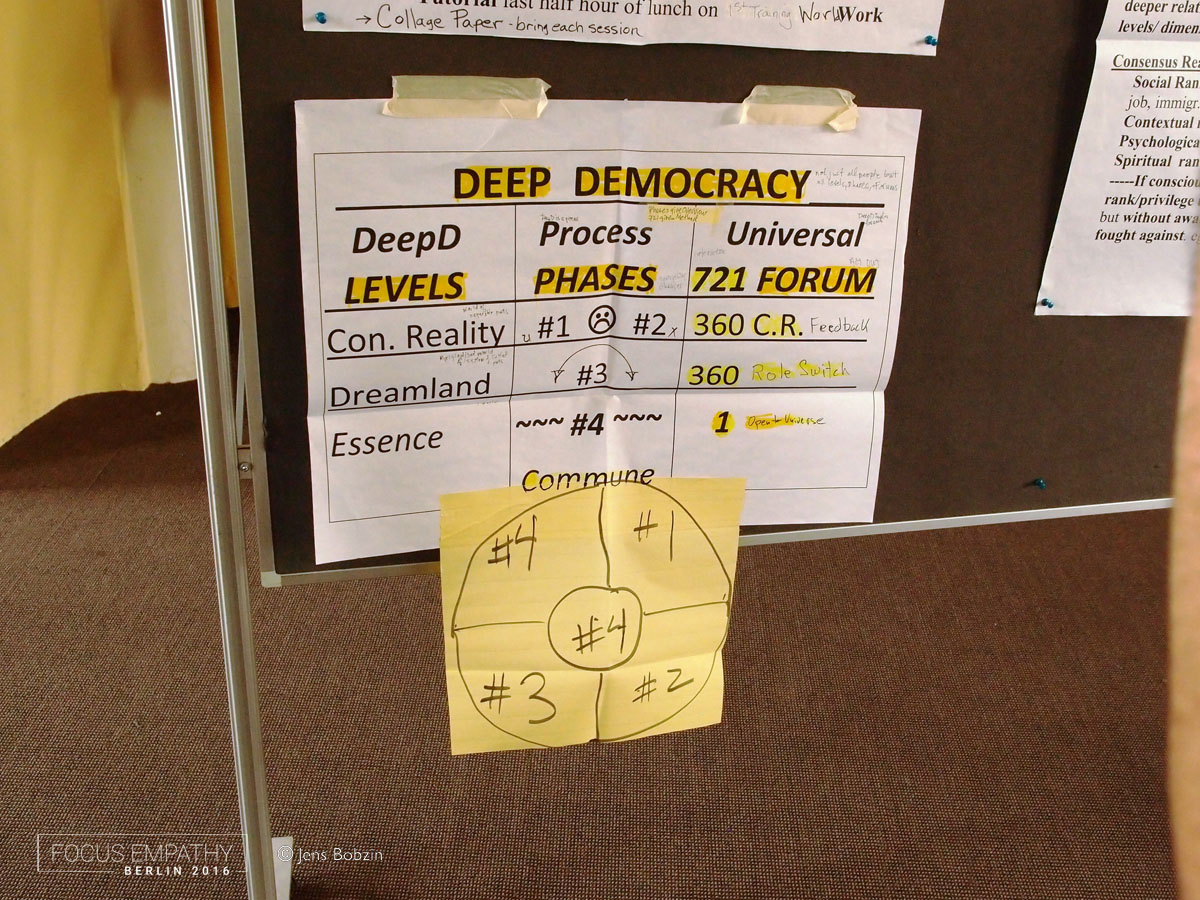 Tutorial last half hour of lunch on 1st Training WorldWork
→ Collage Paper - bring each session
deeper relat
levels/ dimen
Consensus Rea
Social Ran
job, immigr
Contextual
Psychologica
Spiritual ran
-----If conscio
rank/privilege
but without awa
fought against.
DEEP DEMOCRACY
DeepD
LEVELS
Process
PHASES
Universal
721 FORUM
Con. Reality
#1 ☹ #2
360 C.R. Feedback
Dreamland
#3
360 Role Switch
Essence
~~~ #4 ~~~
1 Open + Universe
Commune
#4 #1
#4
#3 #2
FOCUS EMPATHY
BERLIN 2016
© Jens Bobzin